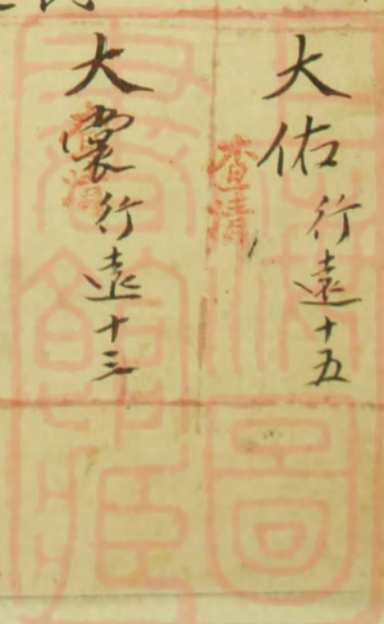 大佑行遠十五
查清
大行遠十三
查清
圖